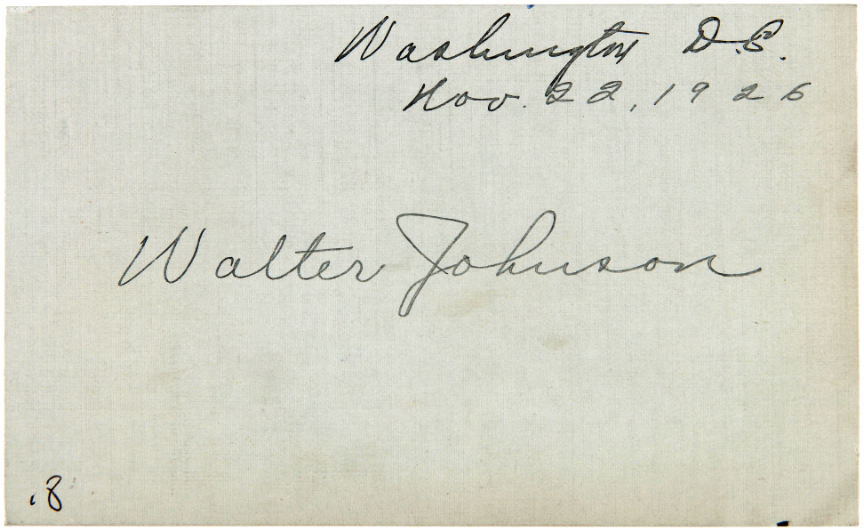 Washington D.C.
Nov. 22, 1926
Walter Johnson
.8